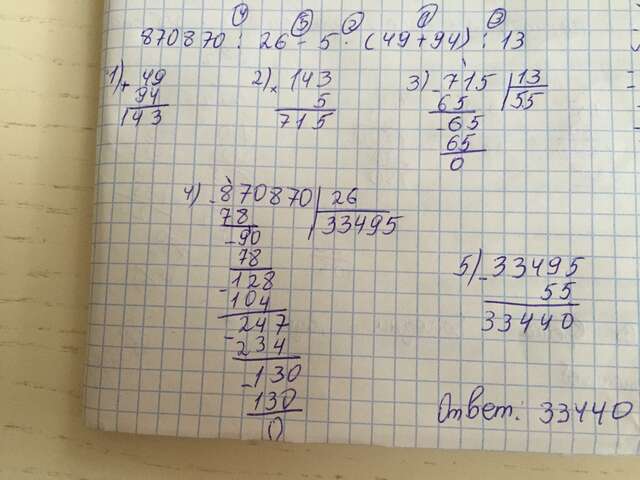 4 5 2 1 3
870870 : 26 - 5 · (49+94) : 13
1) + 49
94
143
2) × 143
5
715
3) - 715 | 13
65 | 55
- 65
65
0
4) - 870870 | 26
78 | 33495
- 90
78
- 128
104
- 247
234
- 130
130
0
5) - 33495
55
33440
Ответ: 33440